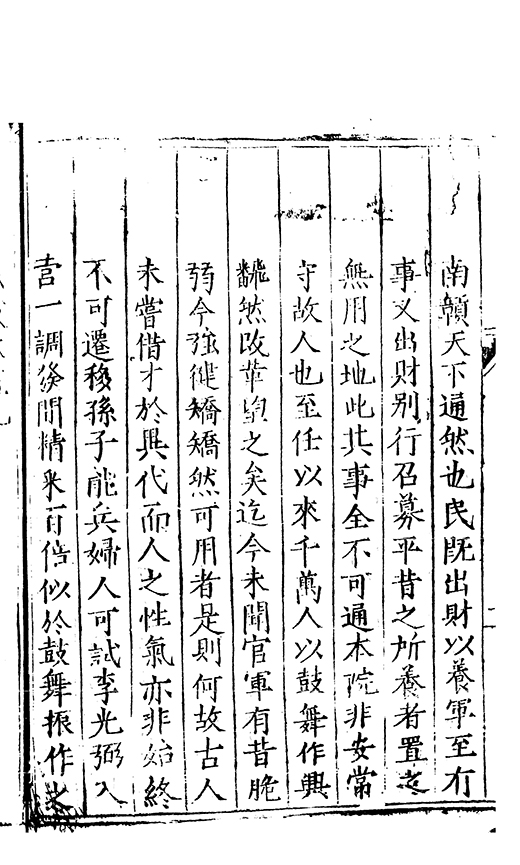 南贛天下通然也民既出財以養軍至有
事又出財别行召募平昔之所養者置之
無用之地此其事全不可通本院非安常
守故人也至任以來千萬人以鼓舞作興
飜然改革望之矣迄今未聞官軍有昔脆
弱今強徤矯矯然可用者是則何故古人
未嘗借才於異代而人之性氣亦非始終
不可遷移孫子能兵婦人可試李光弼入
營一調發間精采百倍似於鼓舞振作之